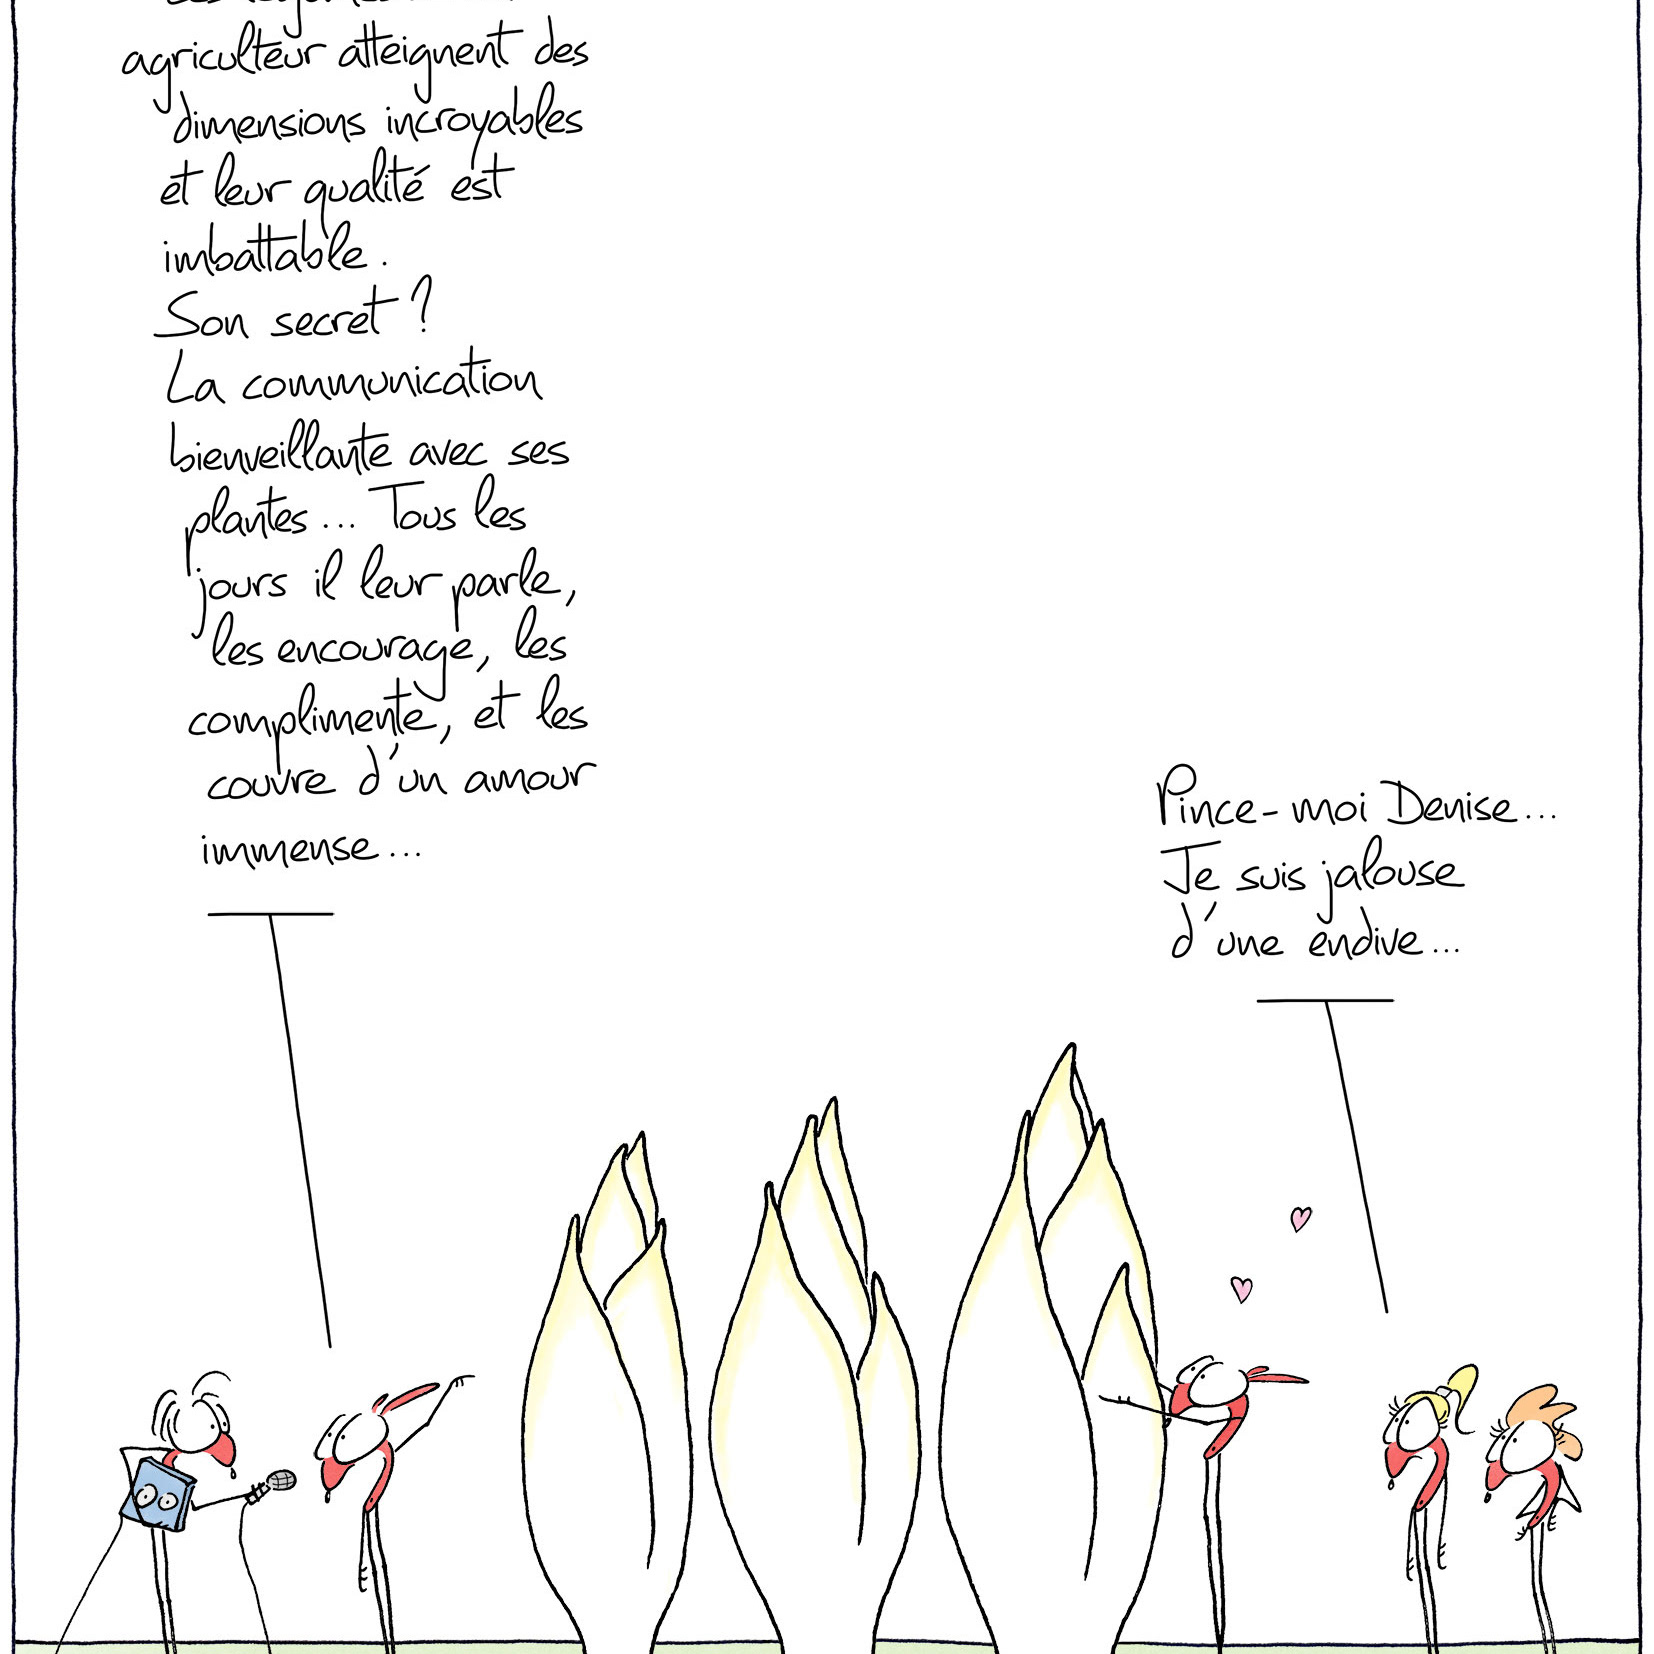 agriculteur atteignent des
dimensions incroyables
et leur qualité est
imbattable.
Son secret ?
La communication
bienveillante avec ses
plantes... Tous les
jours il leur parle,
les encourage, les
complimente, et les
couvre d'un amour
immense...
Pince-moi Denise...
Je suis jalouse
d'une endive...